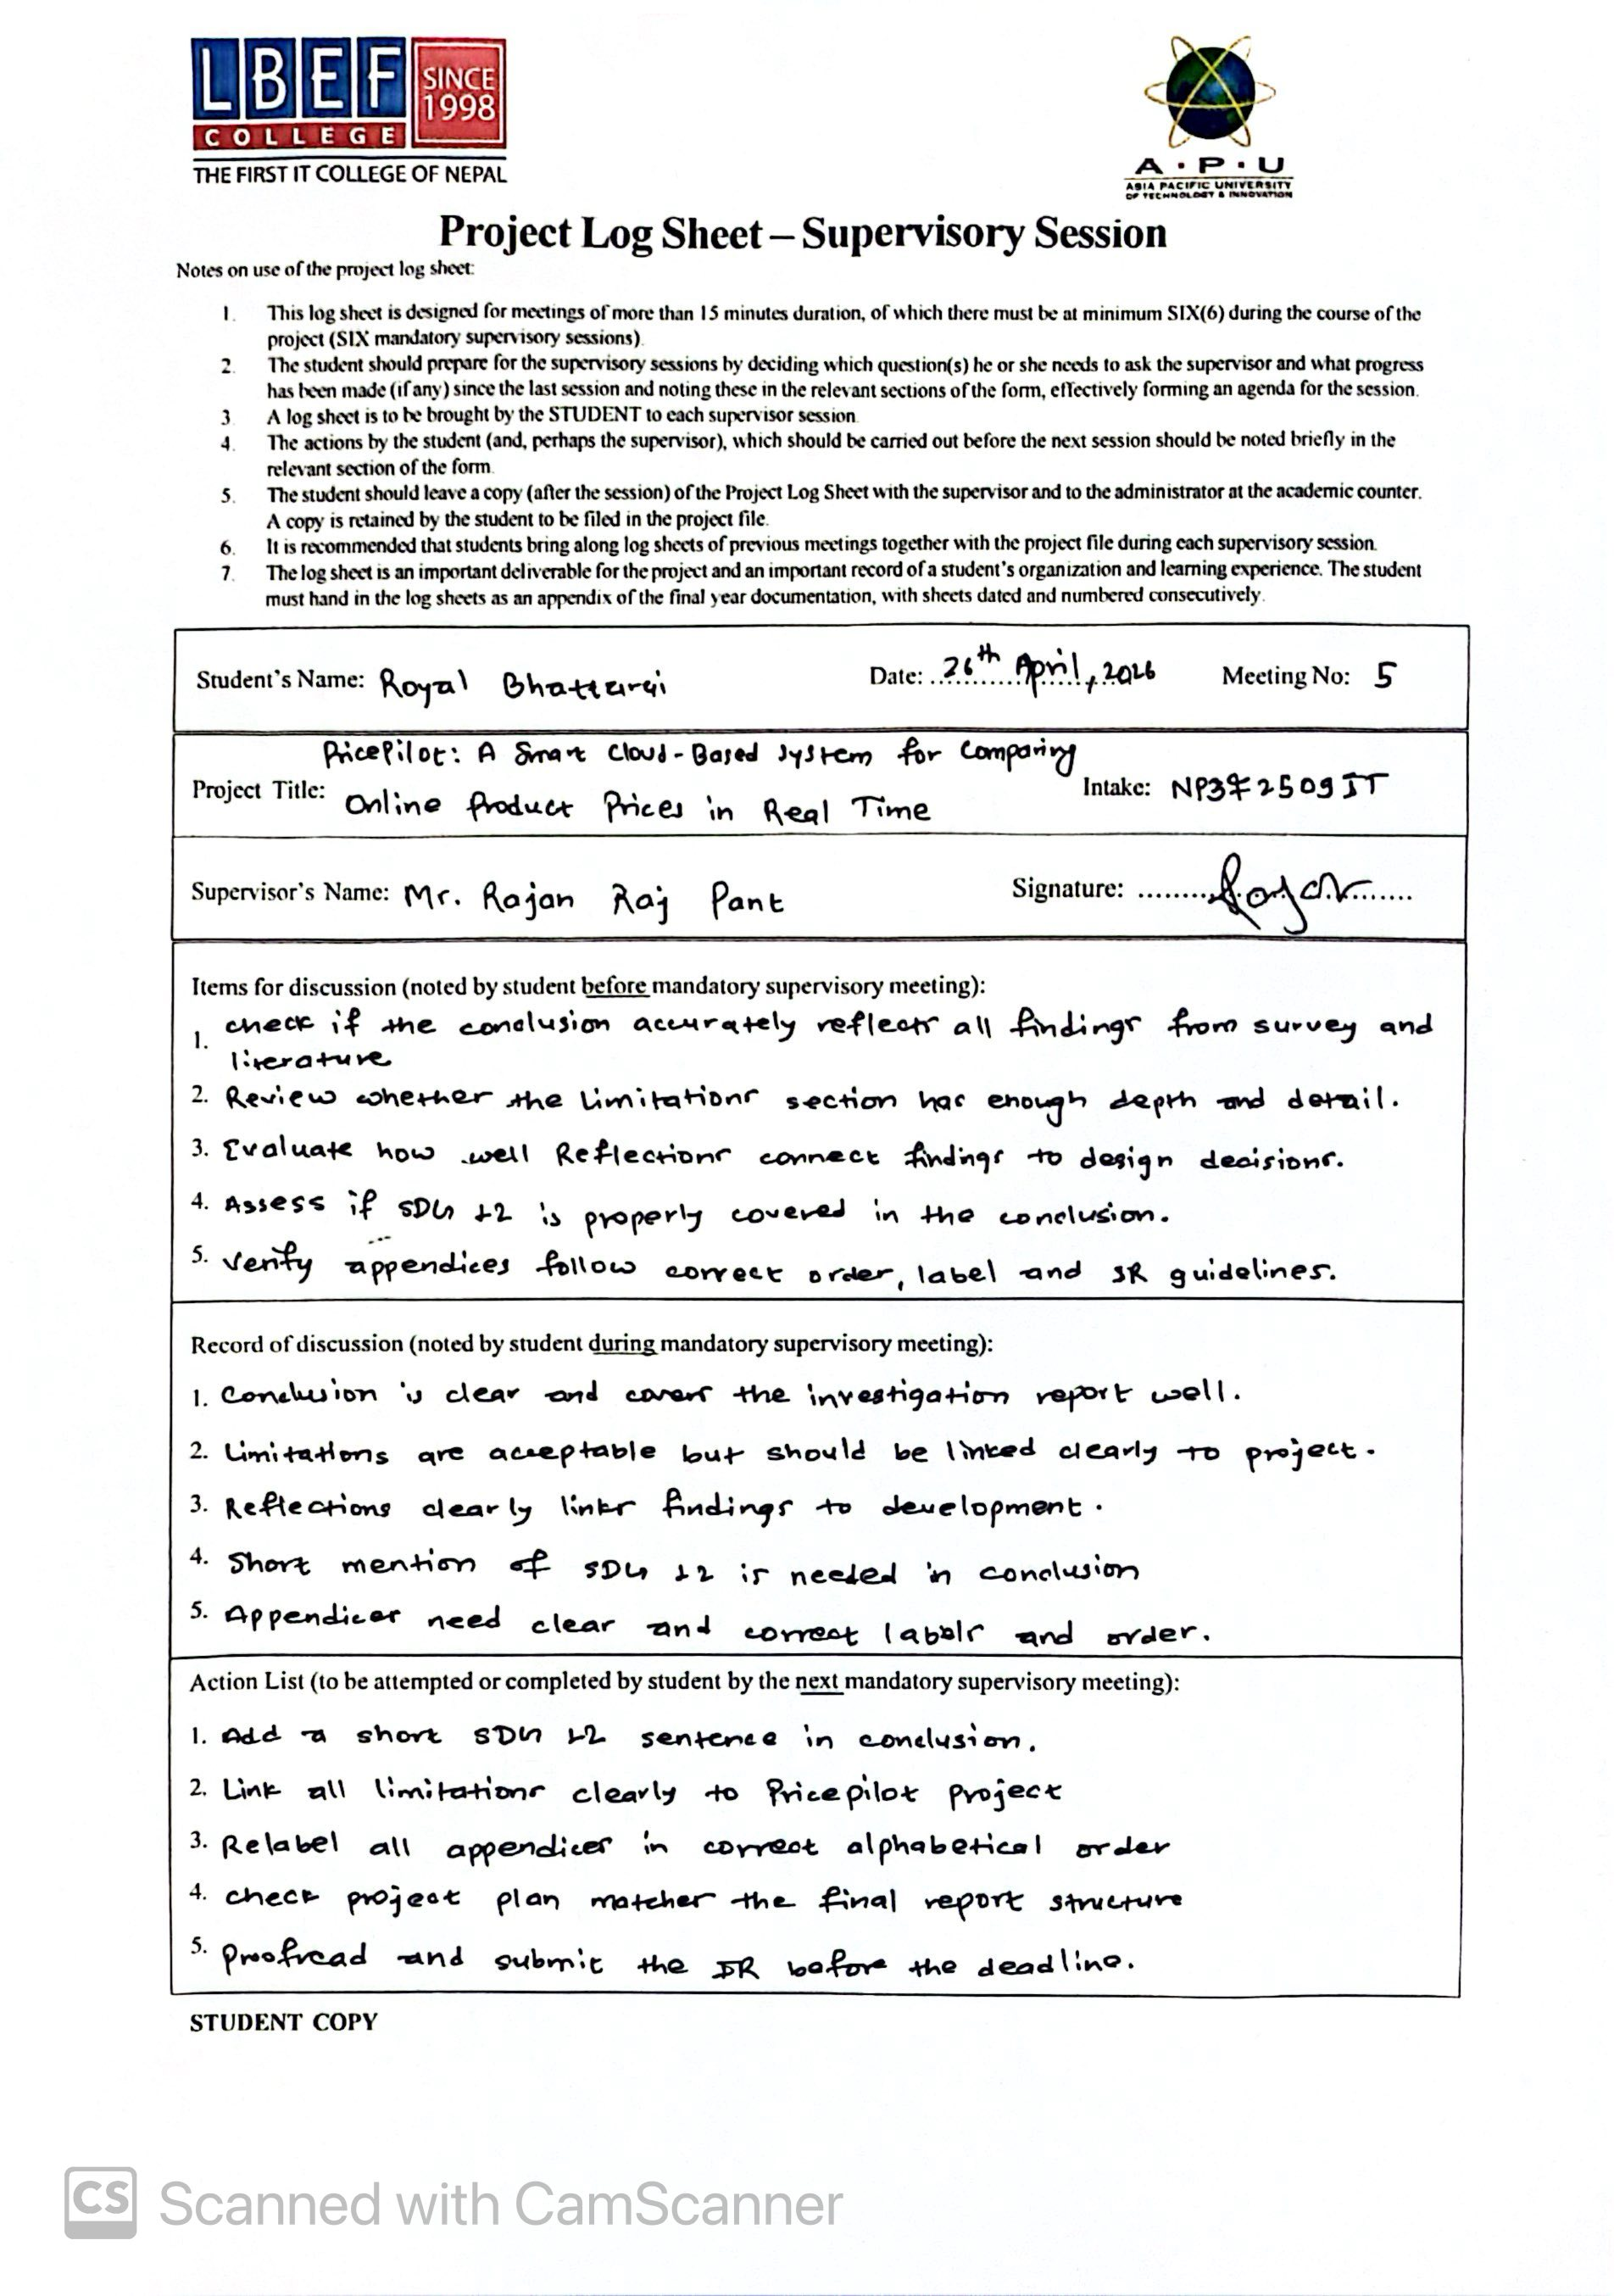 LBEF SINCE 1998
COLLEGE
THE FIRST IT COLLEGE OF NEPAL
A·P·U
ASIA PACIFIC UNIVERSITY
OF TECHNOLOGY & INNOVATION
Project Log Sheet – Supervisory Session
Notes on use of the project log sheet:
1. This log sheet is designed for meetings of more than 15 minutes duration, of which there must be at minimum SIX(6) during the course of the
project (SIX mandatory supervisory sessions).
2. The student should prepare for the supervisory sessions by deciding which question(s) he or she needs to ask the supervisor and what progress
has been made (if any) since the last session and noting these in the relevant sections of the form, effectively forming an agenda for the session.
3. A log sheet is to be brought by the STUDENT to each supervisor session.
4. The actions by the student (and, perhaps the supervisor), which should be carried out before the next session should be noted briefly in the
relevant section of the form.
5. The student should leave a copy (after the session) of the Project Log Sheet with the supervisor and to the administrator at the academic counter.
A copy is retained by the student to be filed in the project file.
6. It is recommended that students bring along log sheets of previous meetings together with the project file during each supervisory session.
7. The log sheet is an important deliverable for the project and an important record of a student's organization and learning experience. The student
must hand in the log sheets as an appendix of the final year documentation, with sheets dated and numbered consecutively.
Student's Name: Royal Bhattarai Date: 26th April, 2026 Meeting No: 5
PricePilot: A Smart Cloud-Based System for Comparing
Project Title: Online Product Prices in Real Time Intake: NP3F2509IT
Supervisor's Name: Mr. Rajan Raj Pant Signature: Rajan
Items for discussion (noted by student before mandatory supervisory meeting):
1. check if the conclusion accurately reflects all findings from survey and
literature
2. Review whether the Limitations section has enough depth and detail.
3. Evaluate how well Reflections connect findings to design decisions.
4. Assess if SDG 12 is properly covered in the conclusion.
5. Verify appendices follow correct order, label and IR guidelines.
Record of discussion (noted by student during mandatory supervisory meeting):
1. Conclusion is clear and covers the investigation report well.
2. Limitations are acceptable but should be linked clearly to project.
3. Reflections clearly links findings to development.
4. Short mention of SDG 12 is needed in conclusion
5. Appendices need clear and correct labels and order.
Action List (to be attempted or completed by student by the next mandatory supervisory meeting):
1. Add a short SDG 12 sentence in conclusion.
2. Link all limitations clearly to Pricepilot project
3. Relabel all appendices in correct alphabetical order
4. check project plan matches the final report structure
5. Proofread and submit the IR before the deadline.
STUDENT COPY
CS Scanned with CamScanner